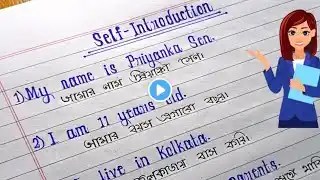 Self-Introduction
1) My name is Priyanka Sen.
আমার নাম প্রিয়াঙ্কা সেন।
2) I am 11 years old.
আমার বয়স এগারো বছর।
I live in Kolkata.
বাস করি।
parents.